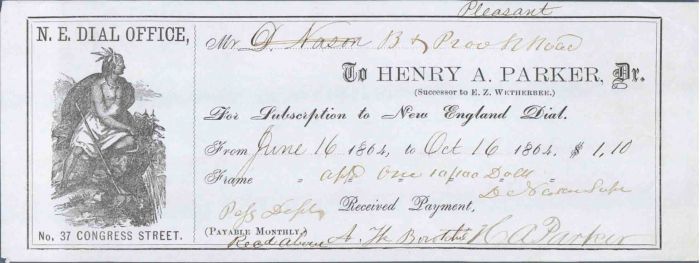 Pleasant
N. E. DIAL OFFICE,
Mr. D. Nason B & Prov R Road
To HENRY A. PARKER, Dr.
(Successor to E. Z. WETHERBEE.)
For Subscription to New England Dial.
From June 16 1864, to Oct 16 1864. $ 1,10
Frame " appd One 10/100 Dolls
D Nason Supt
Pass Dept Received Payment,
(PAYABLE MONTHLY.)
Recd above H A Parker
No. 37 CONGRESS STREET.